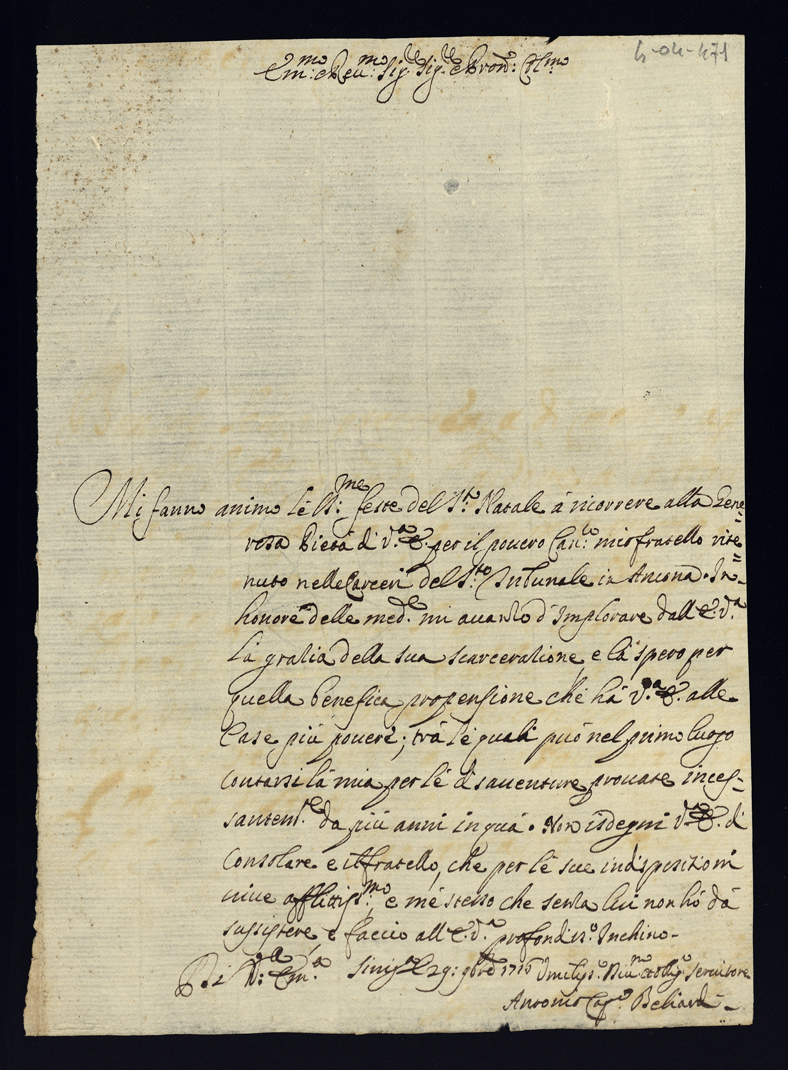 Em:mo e Reu:mo Sig.re Sig.re e Pron: Col:mo
5-04-471
Mi fanno animo lè SS:me feste del S.to Natale à ricorrere alla Gene=
rosa Pietà di V.ra E. per il pouero Can:co mio fratello rite=
nuto nelle Carceri del S.to Tribunale in Ancona. In
honore delle med.e mi auanzo d'Implorare dall'E. V.a
là gratia della sua scarceratione, e là spero per
quella benefica propensione che hà V.ra E. alle
Case più pouere; trà lè quali può nel primo luogo
Contarsi là mia per lè disauenture prouate inces=
santem.te da più anni in quà. Non isdegni V.ra E. di
Consolare e il fratello, che per lè sue indisposizioni
uiue afflittiss:mo e mè stesso che senza lui non hò dà
sussistere e faccio all'E. V.a profondiss.o Inchino
Di V:a Em.a Sinig.a 29: 9bre 1716 Umiliss.o Diu.mo Obblig.o Seruitore
Antonio Beliardi